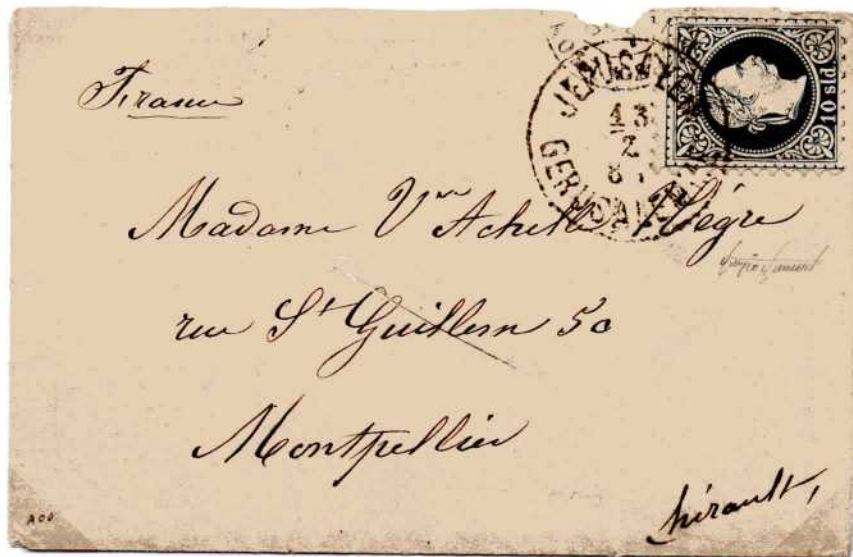 France
JERUSALEM
13
2
GERUSALEMME
10 sld.
Madame Vve Achille Nègre
rue St Guillem 50
Montpellier
hérault,